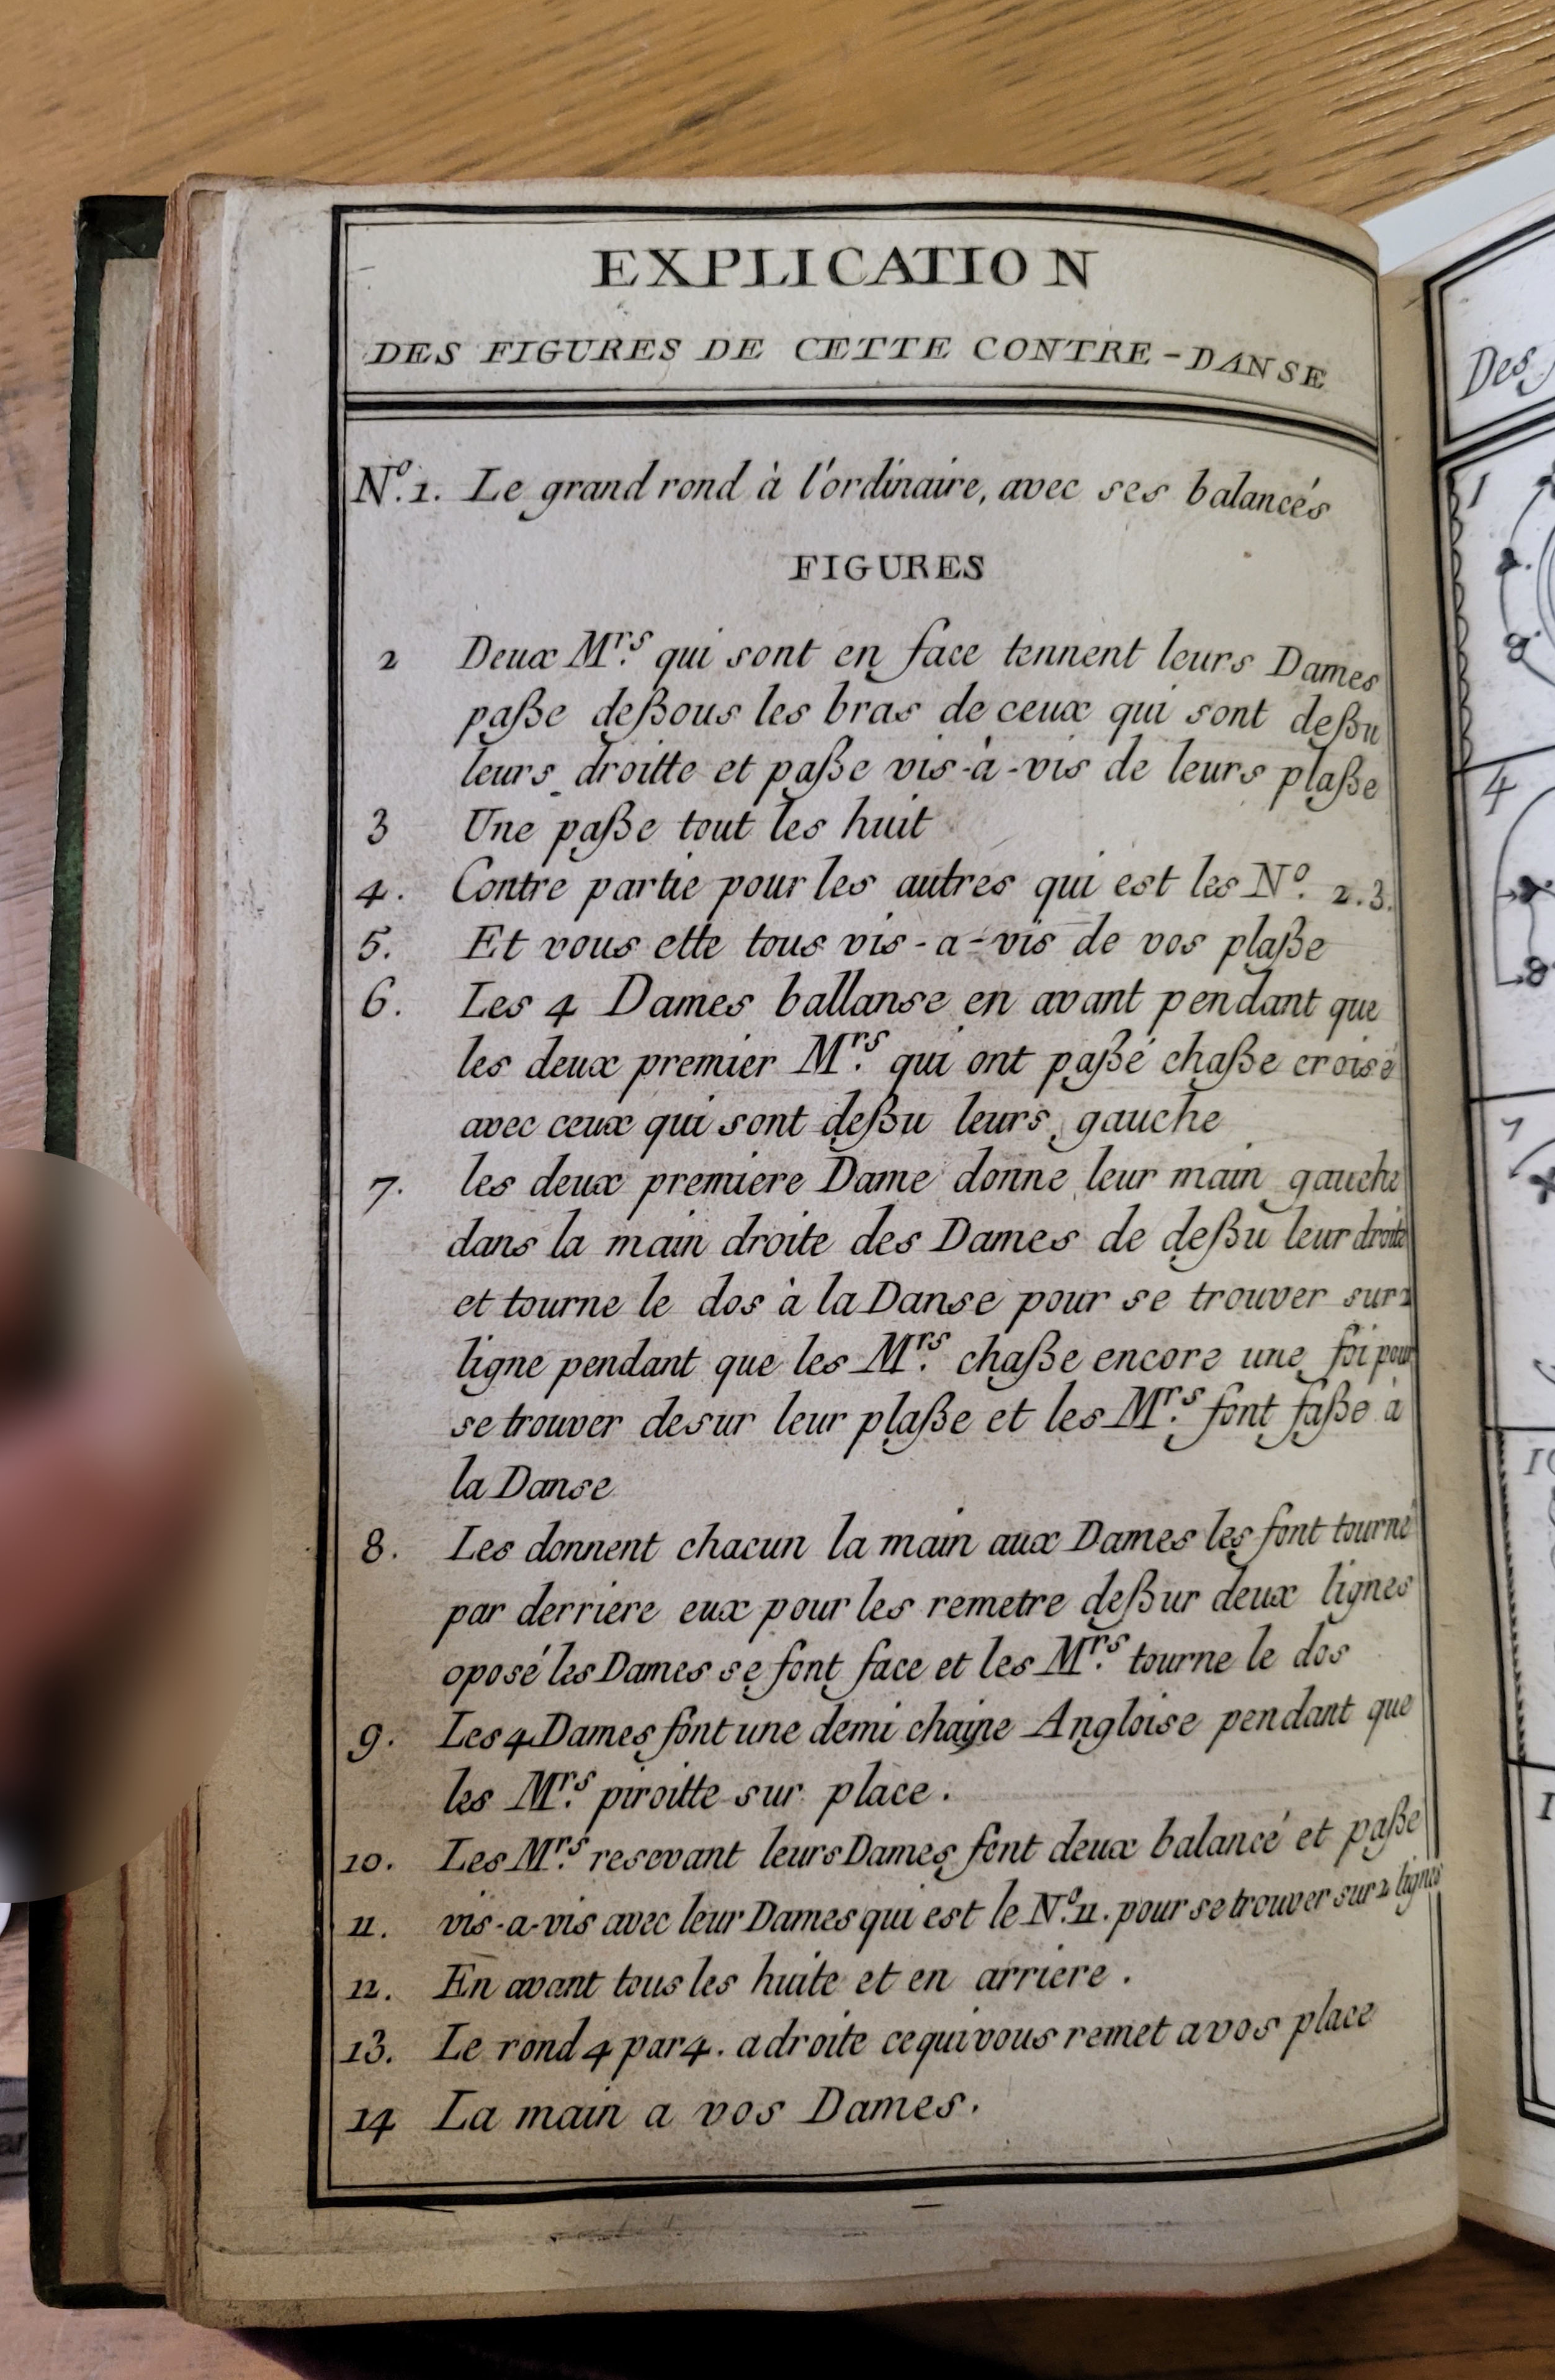 EXPLICATION
DES FIGURES DE CETTE CONTRE-DANSE
Nº.1. Le grand rond à l'ordinaire, avec ses balancés
FIGURES
2 Deux Mrs. qui sont en face tennent leurs Dames
paße deßous les bras de ceux qui sont deßu
leurs droitte et paße vis-à-vis de leurs plaße
3 Une paße tout les huit
4. Contre partie pour les autres qui est les Nº. 2.3.
5. Et vous ette tous vis-a-vis de vos plaße
6. Les 4 Dames ballanse en avant pendant que
les deux premier Mrs. qui ont paßé chaße croisé
avec ceux qui sont deßu leurs gauche
7. les deux premiere Dame donne leur main gauche
dans la main droite des Dames de deßu leur droite
et tourne le dos à la Danse pour se trouver sur 2
ligne pendant que les Mrs. chaße encore une foi pour
se trouver desur leur plaße et les Mrs. font faße à
la Danse
8. Les donnent chacun la main aux Dames les font tourné
par derriere eux pour les remetre deßur deux lignes
oposé les Dames se font face et les Mrs. tourne le dos
9. Les 4 Dames font une demi chaine Angloise pendant que
les Mrs. piroitte sur place.
10. Les Mrs. resevant leurs Dames font deux balancé et paße
11. vis-a-vis avec leur Dames qui est le Nº.11. pour se trouver sur 2 lignes
12. En avant tous les huite et en arriere.
13. Le rond 4 par 4. a droite ce qui vous remet a vos place
14 La main a vos Dames.
Des
1
8
4
8
7